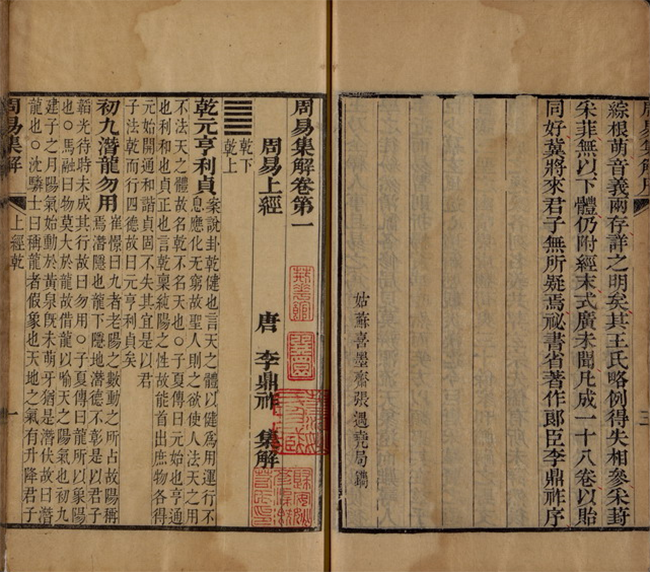 綜根萌音義兩存詳之明矣其王氏略例得失相參采葑
采菲無以下體仍附經末式廣未聞凡成一十八卷以貽
同好冀將來君子無所疑焉祕書省著作郎臣李鼎祚序
姑蘇喜墨齋張遇堯局鐫
周易集解卷第一
周易上經
唐 李鼎祚 集解
乾下
乾上
乾元亨利貞
案說卦乾健也言天之體以健爲用運行不
息應化无窮故聖人則之欲使人法天之用
不法天之體故名乾不名天也子夏傳曰元始也亨通
也利和也貞正也言乾稟純陽之性故能首出庶物各得
元始開通和諧貞固不失其宜是以君
子法乾而行四德故曰元亨利貞矣
初九潛龍勿用
崔憬曰九者老陽之數動之所占故陽稱
焉潛隱也龍下隱地潛德不彰是以君子
韜光待時未成其行故曰勿用子夏傳曰龍所以象陽
也馬融曰物莫大於龍故借龍以喻天之陽氣也初九
建子之月陽氣始動於黃泉旣未萌牙猶是潛伏故曰潛
龍也沈驎士曰稱龍者假象也天地之氣有升降君子
周易集解
上經乾
一